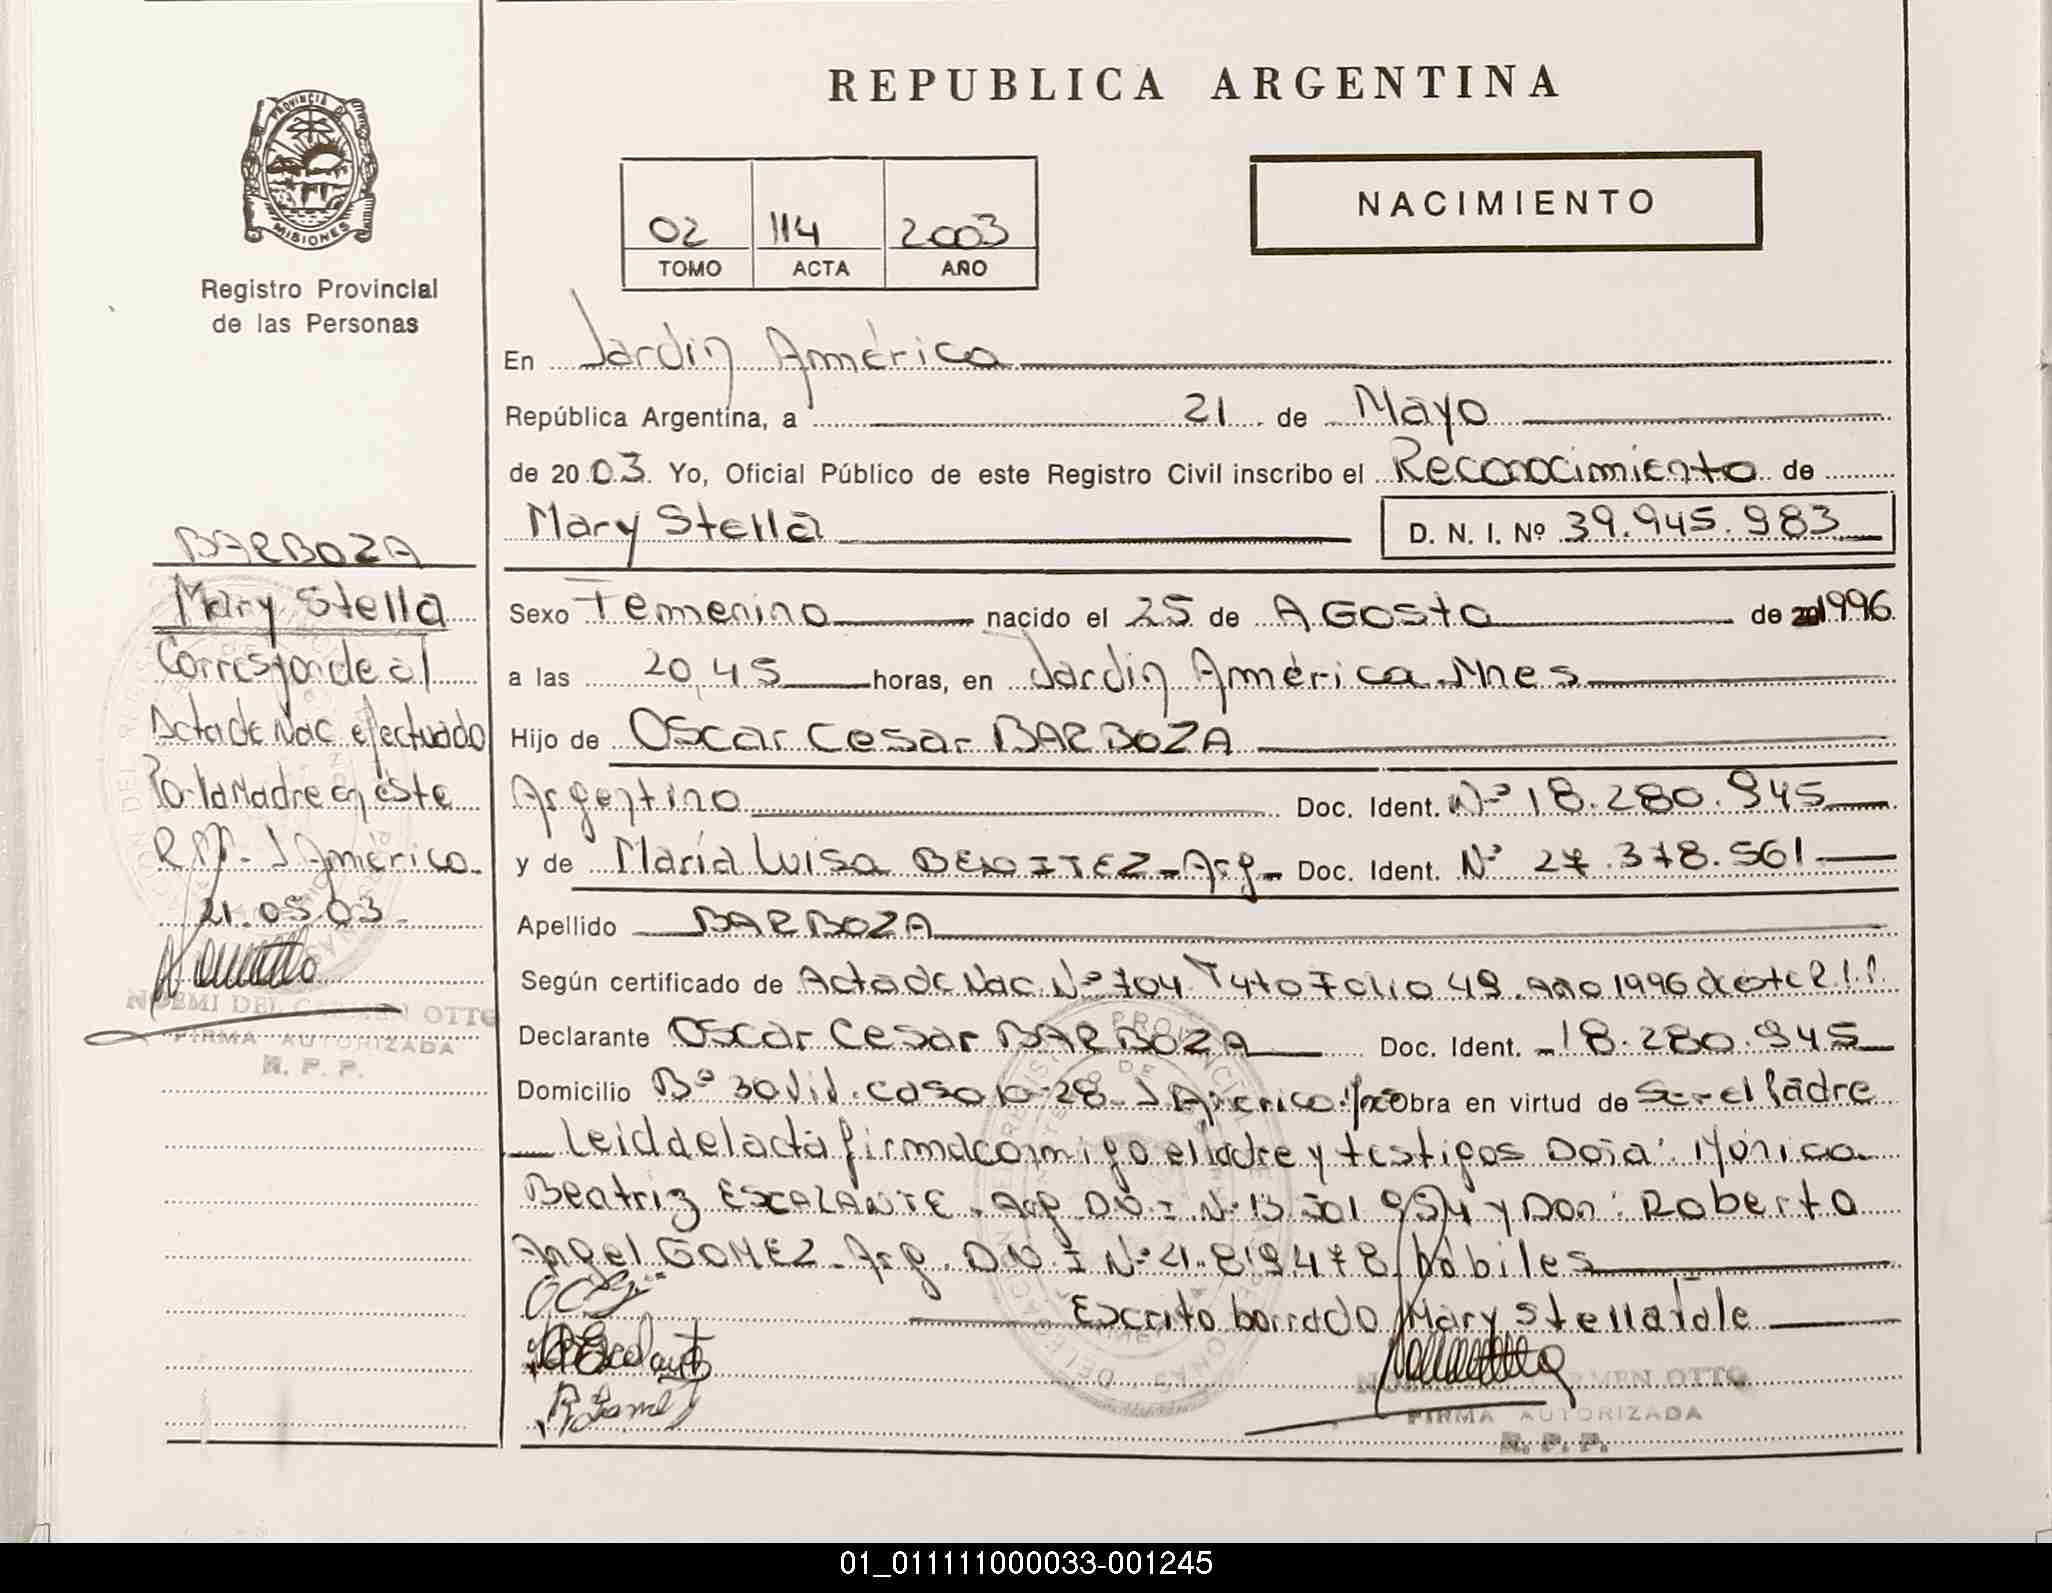 REPUBLICA ARGENTINA
PROVINCIA DE
MISIONES
Registro Provincial
de las Personas
NACIMIENTO
02 114 2003
TOMO ACTA AÑO
En Jardín América
República Argentina, a 21 de Mayo
de 2003. Yo, Oficial Público de este Registro Civil inscribo el Reconocimiento de
Mary Stella D. N. I. Nº 39.945.983
Sexo Femenino nacido el 25 de AGosto de 1996
a las 20,45 horas, en Jardín América Mnes
Hijo de Oscar Cesar BARBOZA
Argentino Doc. Ident. Nº 18.280.945
y de María Luisa BENITEZ - Arg - Doc. Ident. Nº 27.378.561
Apellido BARBOZA
Según certificado de Acta de Nac. Nº 704 Tº 4to Folio 49. Año 1996 de este
Declarante Oscar Cesar BARBOZA Doc. Ident. 18.280.945
Domicilio Bº 30 Viv. casa 28 J América obra en virtud de Ser el Padre
Leida el acta firma conmigo el Padre y testigos Doña: Mónica
Beatriz ESCALANTE. Arg. D.N.I Nº 13.501.954 y Don: Roberto
Angel GOMEZ. Arg. D.N.I Nº 21.819.478 hábiles
Escrito borrado Mary Stella Vale
CARMEN OTTO
FIRMA AUTORIZADA
R. P. P.
BARBOZA
Mary Stella
Corresponde al
Acta de Nac efectuado
Por la Madre en éste
J América.
21.05.03
NOEMI DEL CARMEN OTTO
FIRMA AUTORIZADA
R. P. P.
01_011111000033-001245